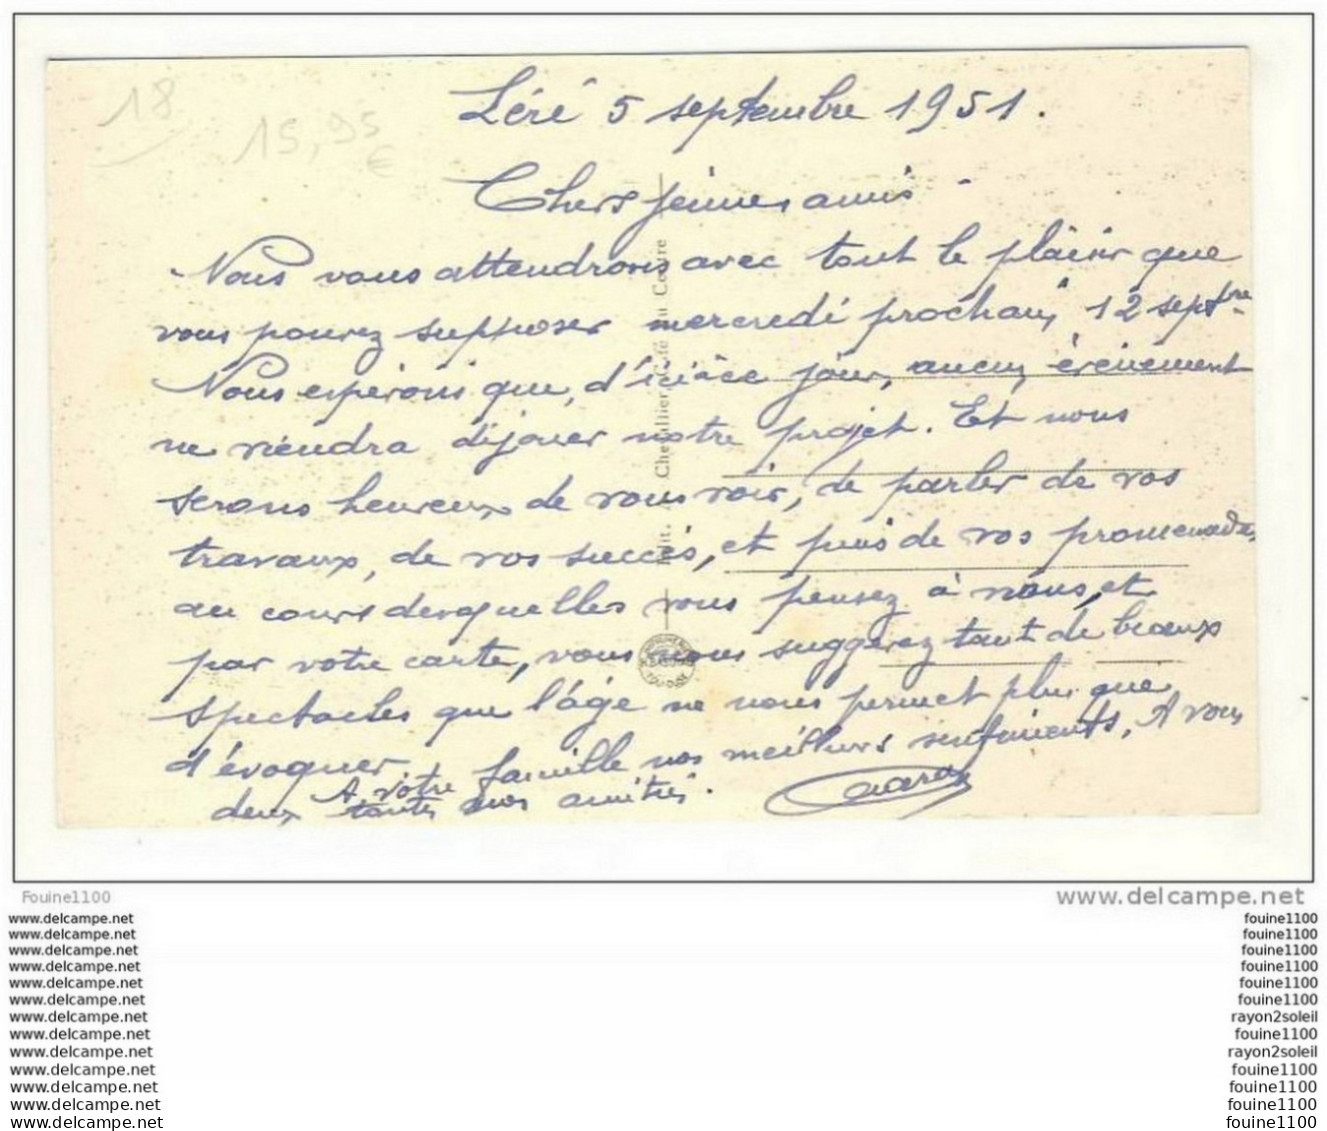 18
15,95
€
Léré 5 septembre 1951.
Chers jeunes amis
Nous vous attendrons avec tout le plaisir que
vous pouvez supposer mercredi prochain 12 septbre.
Nous espérons que, d'ici à ce jour, aucun évènement
ne viendra déjouer notre projet. Et nous
serons heureux de vous voir, de parler de vos
travaux, de vos succès, et puis de vos promenades,
au cours desquelles vous pensez à nous, et
par votre carte, vous nous suggérez tant de beaux
spectacles que l'âge ne nous permet plus que
d'évoquer.
A votre famille nos meilleurs sentiments, A vous
deux toutes nos amitiés.
Edit. Chevallier, Café du Centre
Fouine1100
www.delcampe.net
www.delcampe.net
fouine1100
www.delcampe.net
fouine1100
www.delcampe.net
fouine1100
www.delcampe.net
fouine1100
www.delcampe.net
fouine1100
www.delcampe.net
fouine1100
www.delcampe.net
rayon2soleil
www.delcampe.net
fouine1100
www.delcampe.net
rayon2soleil
www.delcampe.net
fouine1100
www.delcampe.net
fouine1100
www.delcampe.net
fouine1100
www.delcampe.net
fouine1100